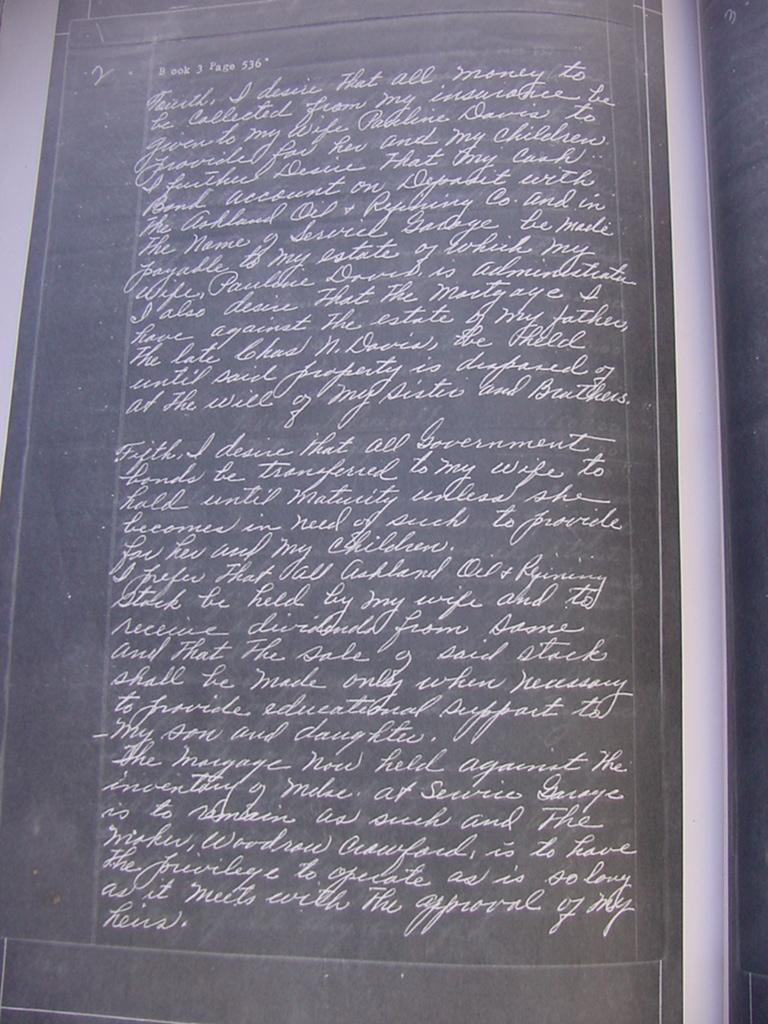 2
Book 3 Page 536
Fourth. I desire that all money to
be collected from my insurance be
given to my wife Pauline Davis to
provide for her and my children.
I further Desire that my Cash
Bond account on Deposit with
the Ashland Oil & Refining Co. and in
the name of Service Garage be made
payable to my estate of which my
wife, Pauline Davis, is administratrix
I also desire that the mortgage I
have against the estate of my father,
the late Chas N. Davis, be held
until said property is disposed of
at the will of my sister and Brothers.
Fifth. I desire that all Government
bonds be transferred to my wife to
hold until maturity unless she
becomes in need of such to provide
for her and my children.
I prefer that all Ashland Oil & Refining
Stock be held by my wife and to
receive dividends from same
and that the sale of said stock
shall be made only when necessary
to provide educational support to
my son and daughter.
The morgage now held against the
inventory of mdse. at Service Garage
is to remain as such and the
maker, Woodrow Crawford, is to have
the privilege to operate as is so long
as it meets with the approval of my
heirs.
3